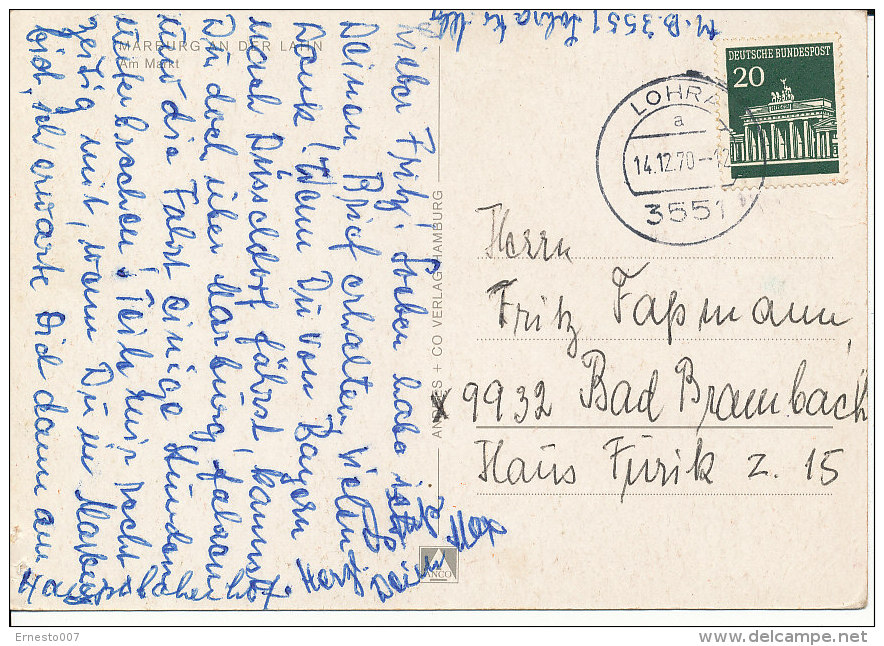 M.B. 3551 Lohra
MARBURG AN DER LAHN
Am Markt
Lieber Fritz! Soeben habe ich
Deinen Brief erhalten, vielen
Dank! Wenn Du von Bayern
nach Düsseldorf fährst, kannst
Du doch über Marburg fahren
und die Fahrt einige Stunden
unterbrechen! Teile mir recht
zeitig mit, wann Du in Marburg
bist, ich erwarte Dich dann am
Hauptbahnhof.
Herzl.
Dein
ANDRES + CO VERLAG HAMBURG
ANCO
DEUTSCHE BUNDESPOST
20
LOHRA
a
14.12.70--12
3551
Herrn
Fritz Faßmann
X9932 Bad Brambach
Haus Furik z. 15
Ernesto007
delcampe.net